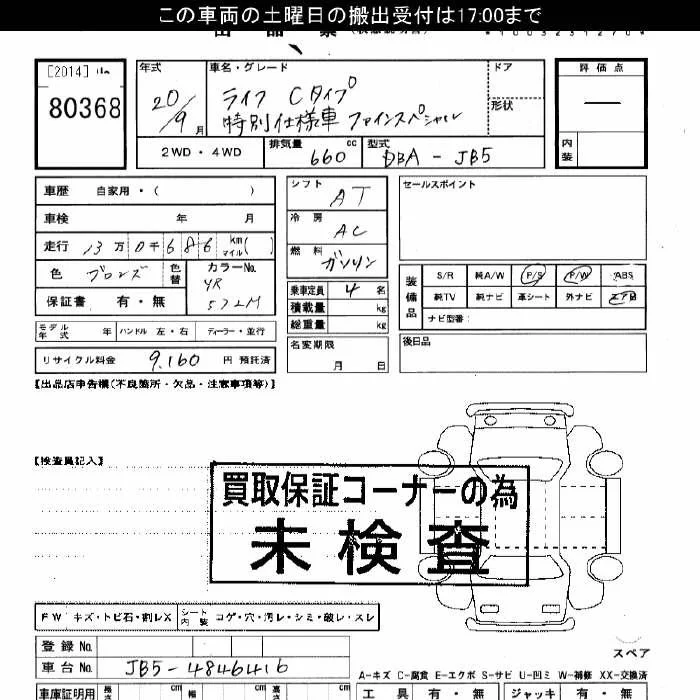 この車両の土曜日の搬出受付は17:00まで
[2014]
80368
年式
20/9月
車名・グレード
ライフ Cタイプ
特別仕様車 ファインスペシャル
ドア
形状
評価点
—
内装
2WD・4WD
排気量 660 cc
型式 DBA-JB5
車歴 自家用・( )
車検 年 月
走行 13万0千686 kmマイル( )
色 ブロンズ 色替
カラーNo. YR572M
保証書 有・無
シフト AT
冷房 AC
燃料 ガソリン
乗車定員 4名
積載量 kg
総重量 kg
セールスポイント
装備品
S/R 純A/W P/S P/W ABS
純TV 純ナビ 革シート 外ナビ エアB
ナビ型番:
モデル年式 年 ハンドル 左・右 ディーラー・並行
名変期限 月 日
後日品
リサイクル料金 9,160 円 預託済
【出品店申告欄(不良箇所・欠品・注意事項等)】
【検査員記入】
買取保証コーナーの為
未検査
FW キズ・トビ石・割レX シート内装 コゲ・穴・汚レ・シミ・破レ・スレ
登録No.
車台No. JB5-4846416
スペア
A-キズ C-腐食 E-エクボ S-サビ U-凹ミ W-補修 XX-交換済
車庫証明用 長さ cm 幅 cm 高さ cm
工具 有・無 ジャッキ 有・無